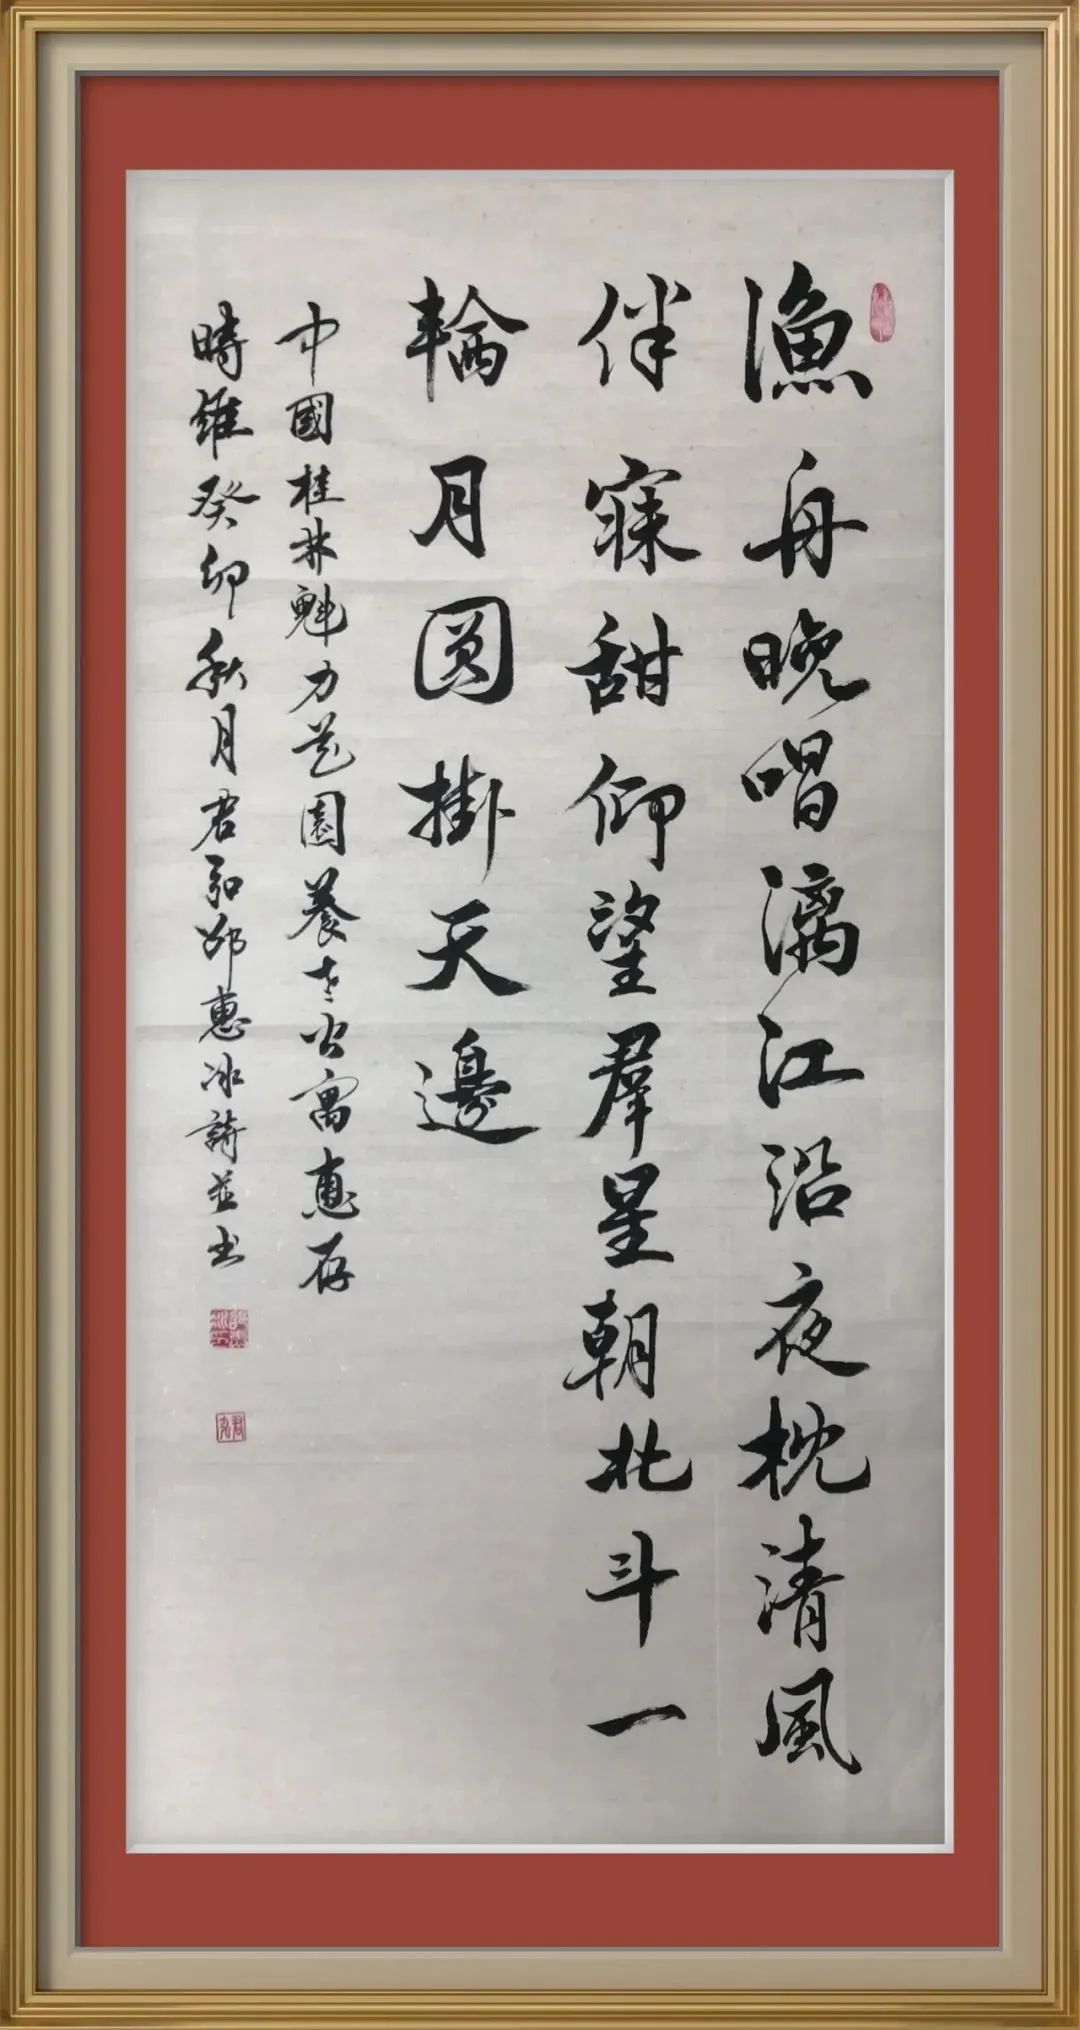 漁舟晚唱漓江沿夜枕清風
伴寐甜仰望群星朝北斗一
輪月圓掛天邊
中國桂林魁力花園養老公寓惠存
時維癸卯秋月君弘邵惠冰詩並书